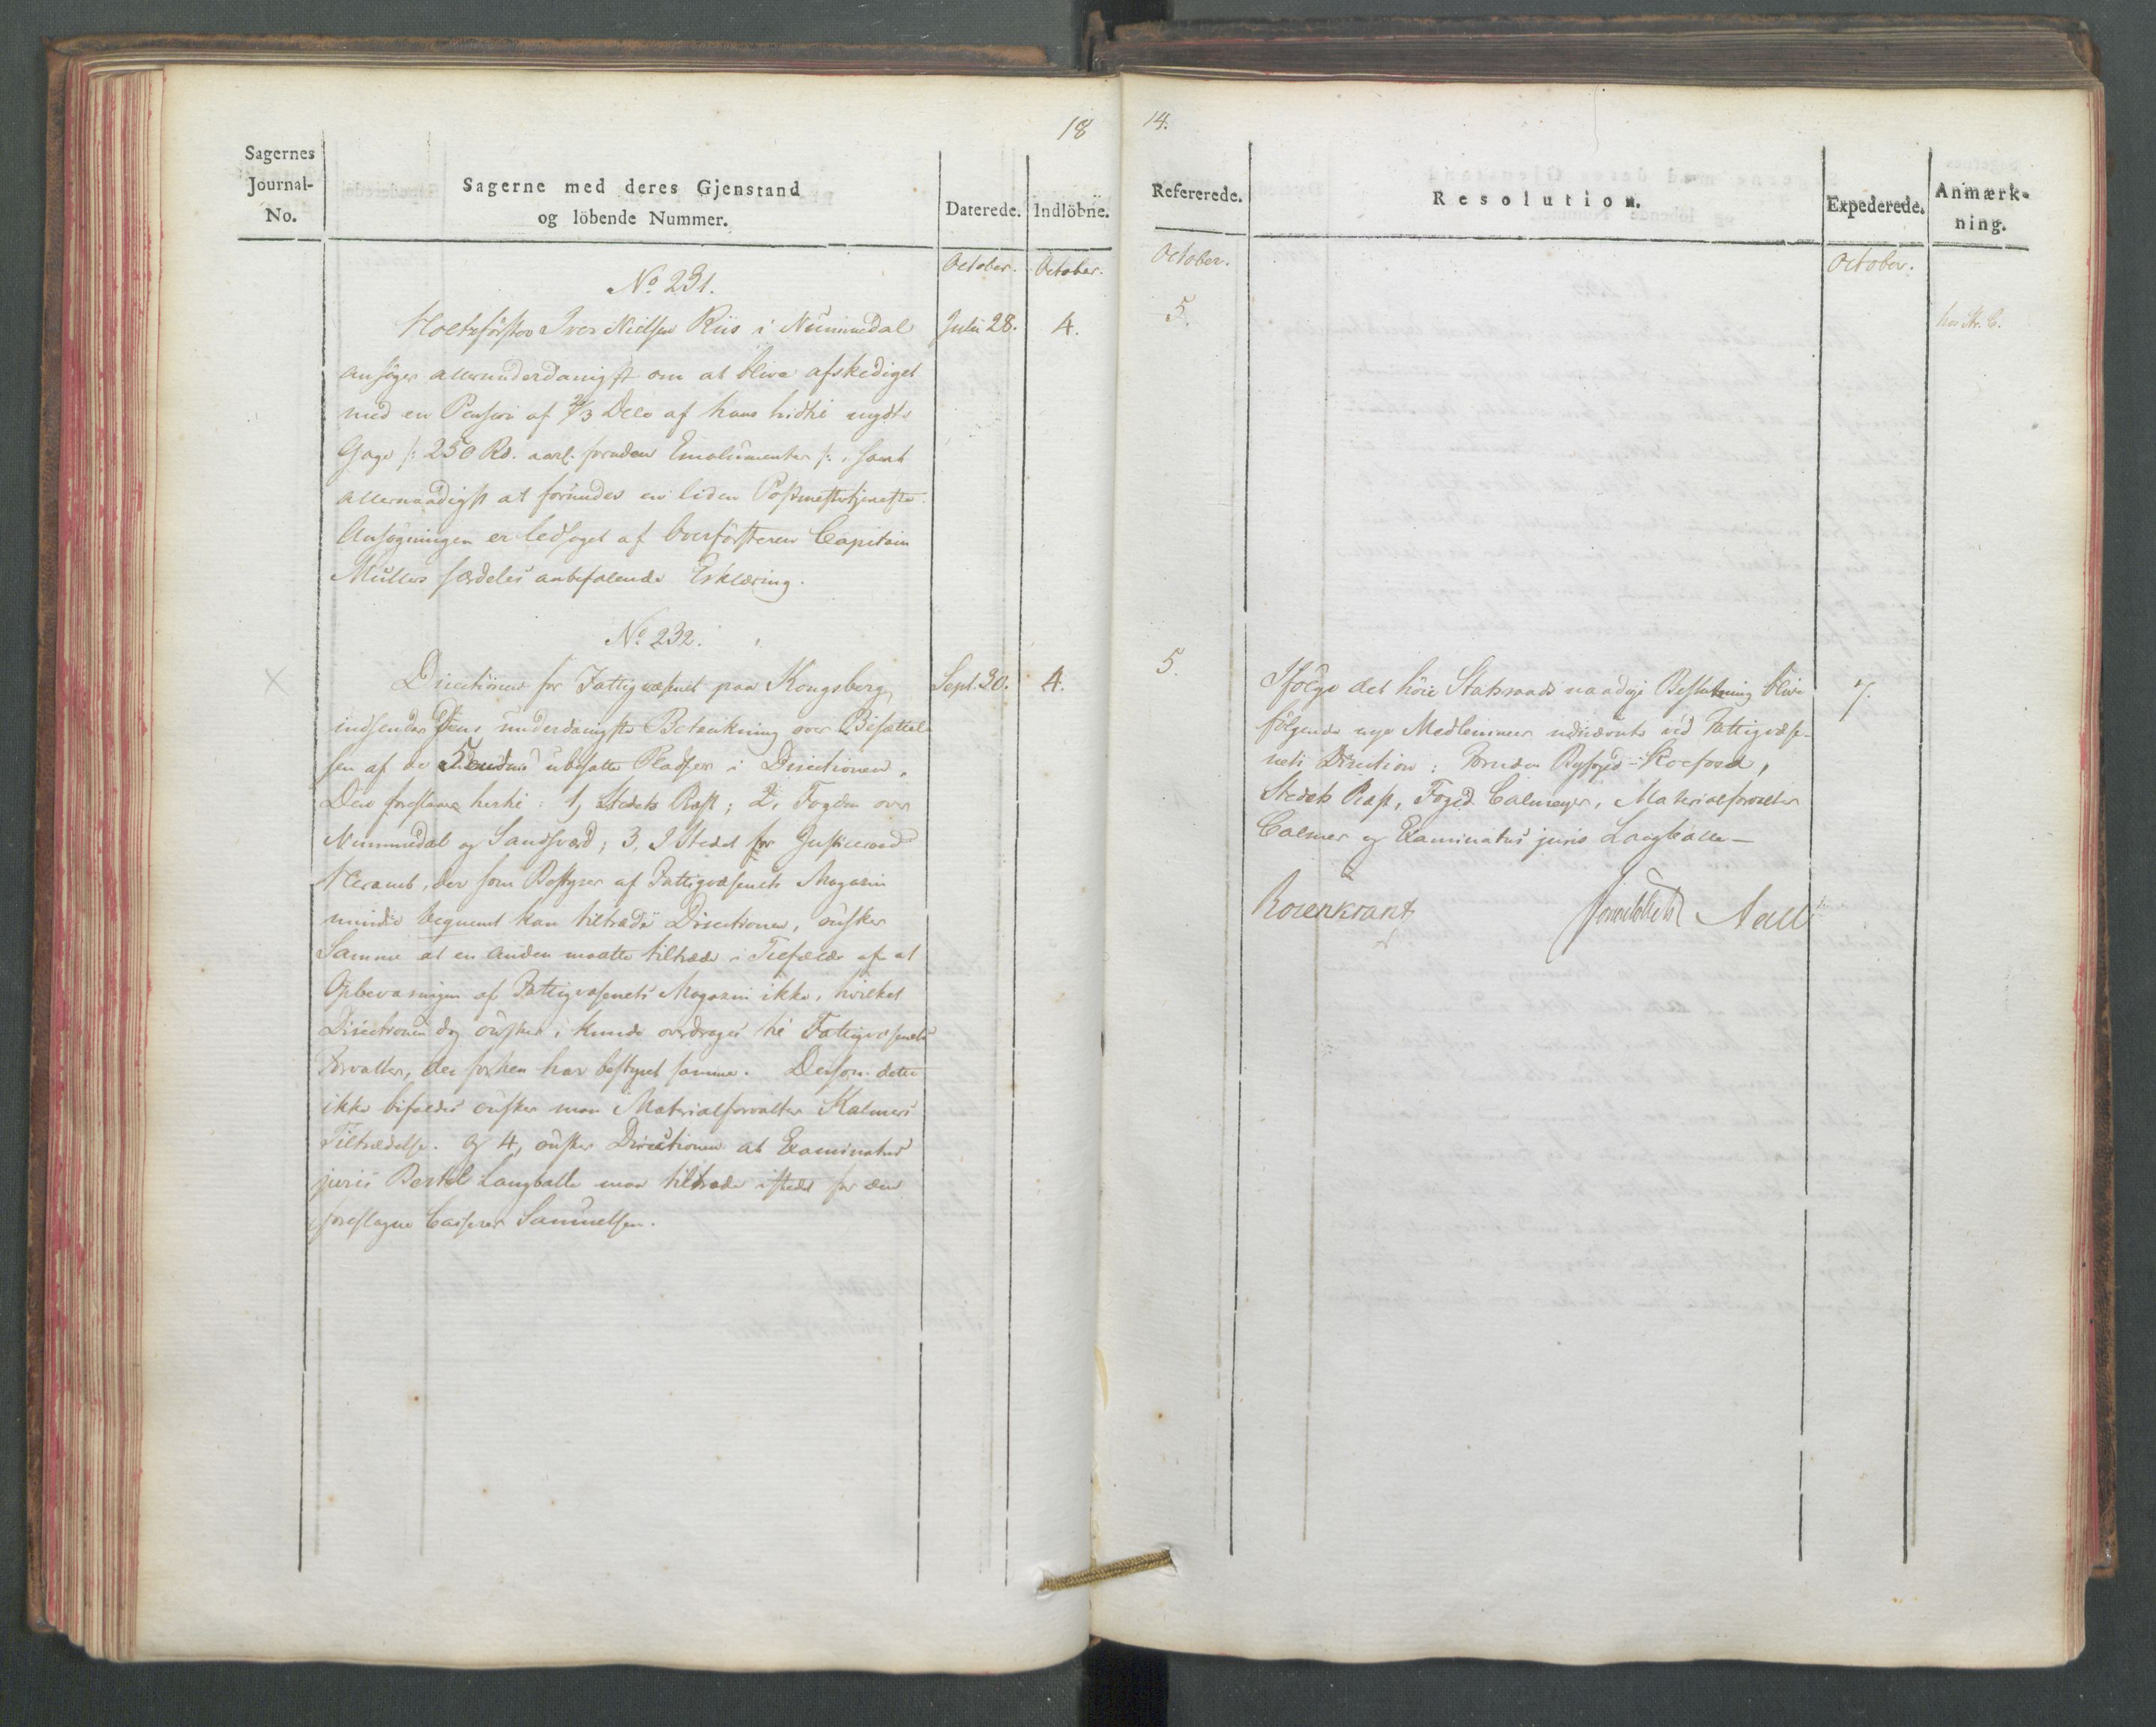 18
14.
Sagernes
Journal-
No.
Sagerne med deres Gjenstand
og löbende Nummer.
Daterede.
Indlöbne.
Refererede.
Resolution.
Expederede.
Anmærk-
ning.
October.
October.
October.
October.
No 231.
Holtzförster Iver Nielsen Riis i Nummedal
Julii 28.
4.
5.
ansöger allerunderdanigst om at blive afskediget
med en Pension af 2/3 Dele af hans hidtil nydte
Gage /: 250 Rd. aarl. foruden Emolumenter :/, samt
allernaadigst at forundes en liden Postmestertjeneste.
Ansögningen er ledsaget af Overförsteren Capitain
Müllers særdeles anbefalende Erklæring.
No 232.
Directionen for Fattigvæsenet paa Kongsberg
Sept. 30.
4.
5.
7.
indsender underdanigste Betænkning over Besættel-
sen af de ubesatte Pladser i Directionen.
Den foreslaaer hertil: 1, Stedets Præst; 2, Fogden over
Nummedal og Sandsværd; 3, I Stedet for Justiceraad
Heramb, der som Bestyrer af Fattigvæsenets Magazin
mindre beqvemt kan tiltræde Directionen, önsker
Samme at en anden maatte tiltræde i Tilfælde af at
Opbevaringen af Fattigvæsenets Magazin ikke, hvilket
Directionen dog önsker, kunde overdrages til Fattigvæsenets
Forvalter, der forhen har bestyret samme. Dersom dette
ikke bifaldes önsker man Materialforvalter Kalmers
Tiltrædelse. og 4, önsker Directionen at Examinatus
juris Bertel Langballe maa tiltræde istedet for den
foreslagne Casserer Samuelsen.
Ifölge det höie Statsraads naadige Beslutning blive
fölgende nye Medlemmer udnævnte ved Fattigvæse-
nets Direction: Foruden Byfoged Koefoed,
Stedets Præst, Foged Calmeyer, Materialforvalter
Calmer og Examinatus juris Langballe—
Rosenkrantz
Sommerhielm
Aall